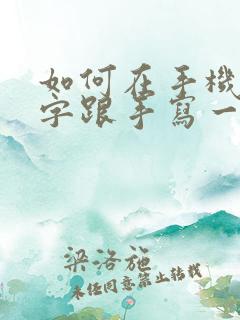 如何在手機
字跟手寫一
梁洛施
未經同意禁止轉載